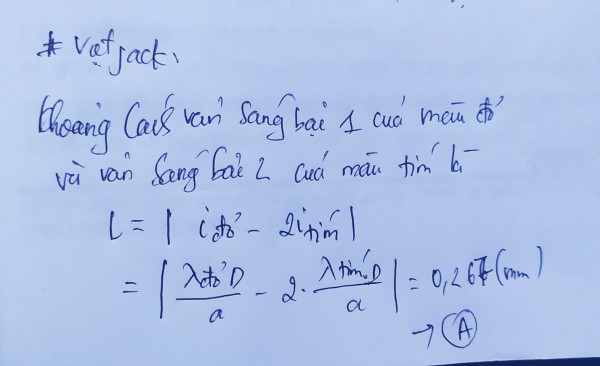 # Vietjack.
Khoảng cách vân sáng bậc 1 của màu đỏ
và vân sáng bậc 2 của màu tím là
L = | iđỏ - 2itím |
= | λđỏ D / a - 2. λtím D / a | = 0,267 (mm)
→ A